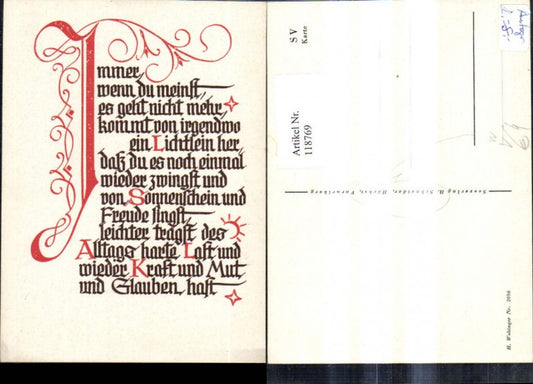 Immer,
wenn du meinst,
es geht nicht mehr,
kommt von irgendwo
ein Lichtlein her,
daß du es noch einmal
wieder zwingst und
von Sonnenschein und
Freude singst,
leichter trägst des
Alltags harte Last und
wieder Kraft und Mut
und Glauben hast
SV
Karte
Artikel Nr.
118769
H. Wahinger Nr. 2056